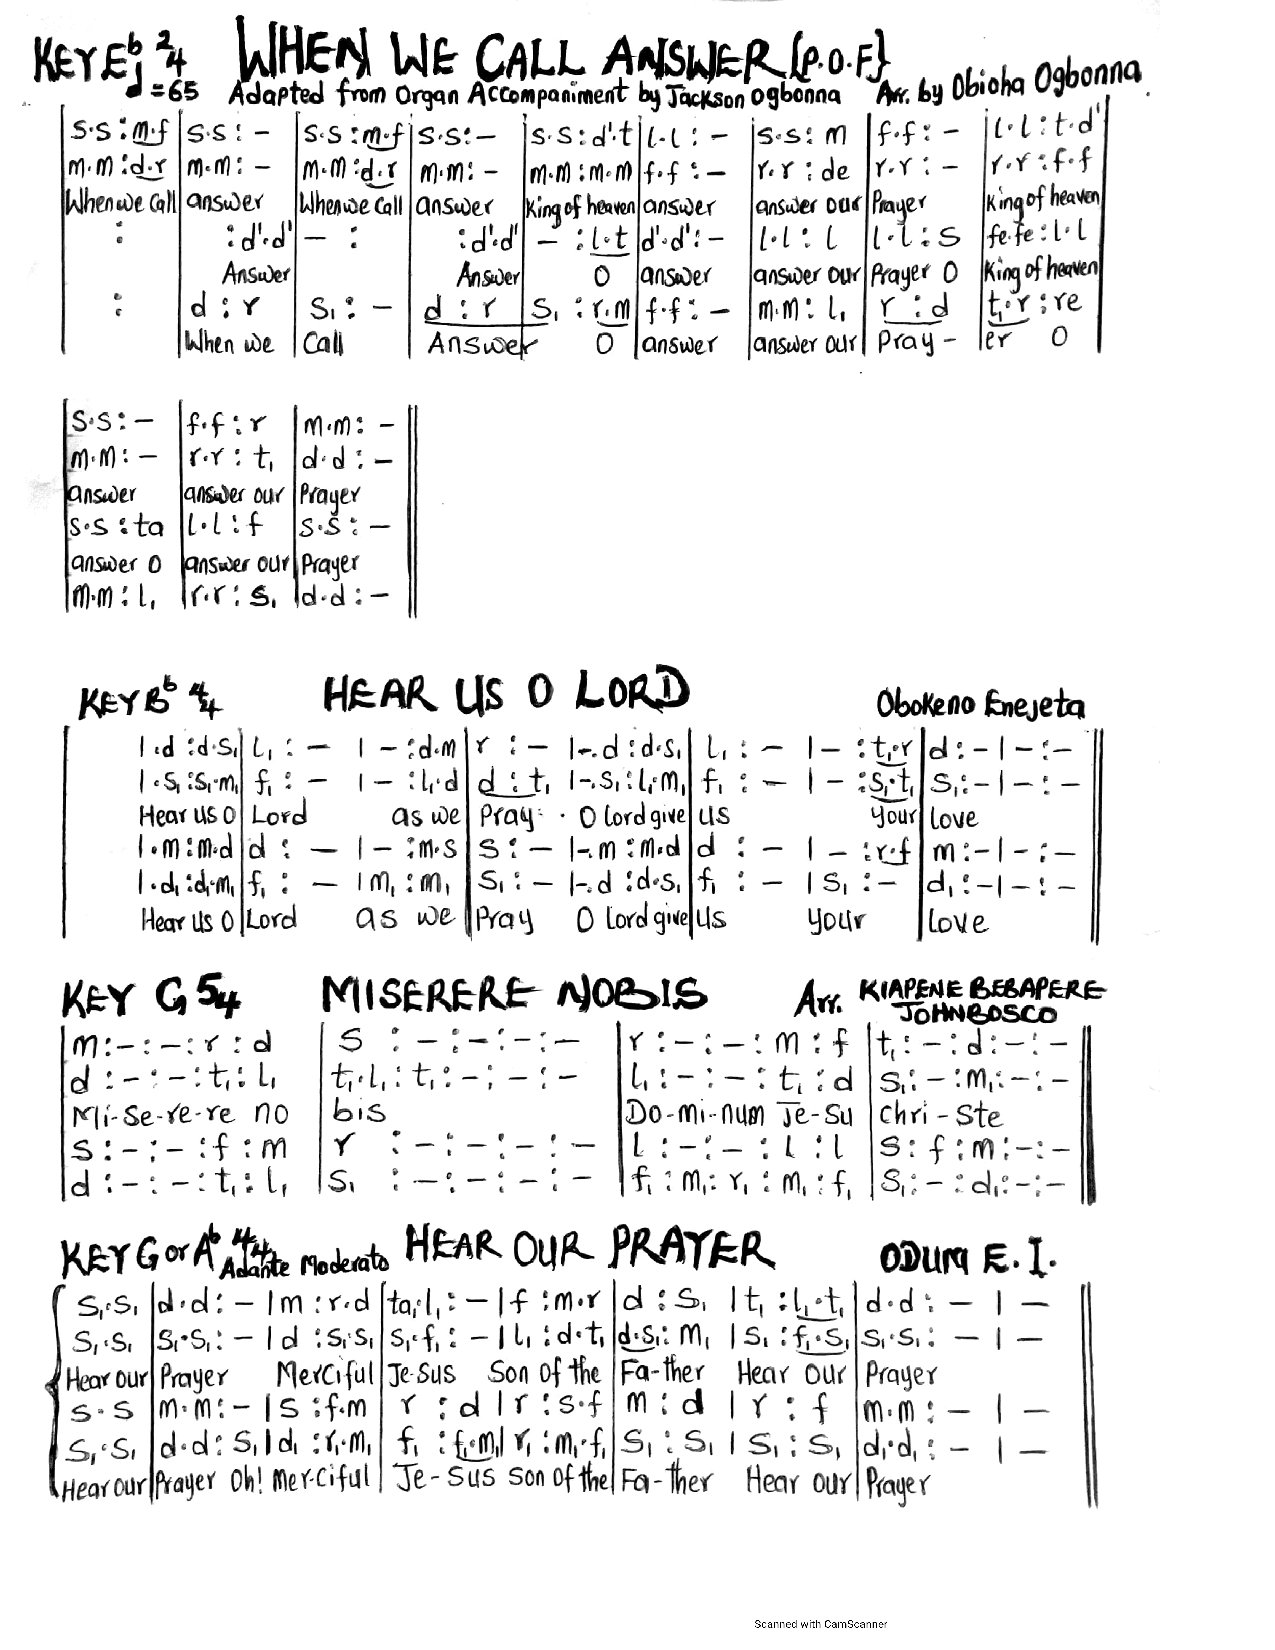 KEY E♭ 2/4 WHEN WE CALL ANSWER {P.O.F}
♩=65 Adapted from Organ Accompaniment by Jackson Ogbonna Arr. by Obioha Ogbonna
|s.s :m.f|s.s :–|s.s :m.f|s.s:–|s.s :d'.t|l.l :–|s.s: m|f.f :–|l.l :t.d'|
|m.m :d.r|m.m: –|m.m :d.r|m.m: –|m.m :m.m|f.f :–|r.r : de|r.r :–|r.r :f.f|
|When we call|answer|When we call|answer|King of heaven|answer|answer our|Prayer|King of heaven|
| : | :d'.d'|– : | :d'.d'|– :l.t|d'.d':–|l.l : l|l.l :s|fe.fe :l.l|
Answer Answer O answer answer our Prayer O King of heaven
| : |d : r|s₁ :–|d : r|s₁ :r.m|f.f :–|m.m: l₁|r : d|t₁.r :re|
When we Call Answer O answer answer our Pray – er O
|s.s :–|f.f :r|m.m: –||
|m.m :–|r.r : t₁|d.d :–||
|answer|answer our|Prayer||
|s.s :ta|l.l :f|s.s :–||
|answer O|answer our|Prayer||
|m.m: l₁|r.r : s₁|d.d :–||
KEY B♭ 4/4 HEAR US O LORD Obokeno Enejeta
| |.d :d.s₁|l₁ :– |– :d.m|r :– |–.d :d.s₁|l₁ :– |– :t₁.r|d :–|–:–||
|.s₁ :s₁.m₁|f₁ :– |– :l₁.d|d : t₁ |–.s₁ :l₁.m₁|f₁ :– |– :s₁.t₁|s₁:–|–:–||
Hear us O Lord as we Pray O lord give us your love
|.m :m.d|d :– |– :m.s|s :– |–.m :m.d|d :– |– :r.f|m:–|–:–||
|.d₁ :d₁.m₁|f₁ :– |m₁ :m₁|s₁ :– |–.d :d.s₁|f₁ :– |s₁ :–|d₁:–|–:–||
Hear us O Lord as we Pray O lord give us your love
KEY G 5/4 MISERERE NOBIS Arr. KIAPENE BEBAPERE JOHNBOSCO
|m:–:–:r:d|s :–:–:–:–|r :–:–:m:f|t₁:–:d:–:–||
|d :–:–:t₁:l₁|t₁.l₁:t₁:–:–:–|l₁:–:–:t₁:d|s₁:–:m₁:–:–||
Mi-se-re-re no bis Do-mi-num Je-Su Chri-Ste
|s:–:–:f:m|r :–:–:–:–|l :–:–:l:l|s:f:m:–:–||
|d :–:–:t₁:l₁|s₁ :–:–:–:–|f₁:m₁:r₁:m₁:f₁|s₁:–:d₁:–:–||
KEY G or A♭ 4/4 Adante Moderato HEAR OUR PRAYER ODUM E.I.
s₁.s₁|d.d :–|m :r.d|ta₁.l₁:–|f :m.r|d :s₁ |t₁ :l₁.t₁|d.d :–|–||
s₁.s₁|s₁.s₁:–|d :s₁.s₁|s₁.f₁:–|l₁ :d.t₁|d.s₁:m₁ |s₁ :f₁.s₁|s₁.s₁:–|–||
Hear our Prayer Merciful Je-sus Son of the Fa-ther Hear our Prayer
s.s |m.m:–|s :f.m|r :d|r :s.f|m :d |r :f|m.m:–|–||
s₁.s₁|d.d: s₁|d₁ :r₁.m₁|f₁ :f₁.m₁|r₁ :m₁.f₁|s₁ :s₁|s₁ :s₁|d₁.d₁:–|–||
Hear our Prayer Oh! Mer-ciful Je-Sus Son of the Fa-ther Hear our Prayer
Scanned with CamScanner